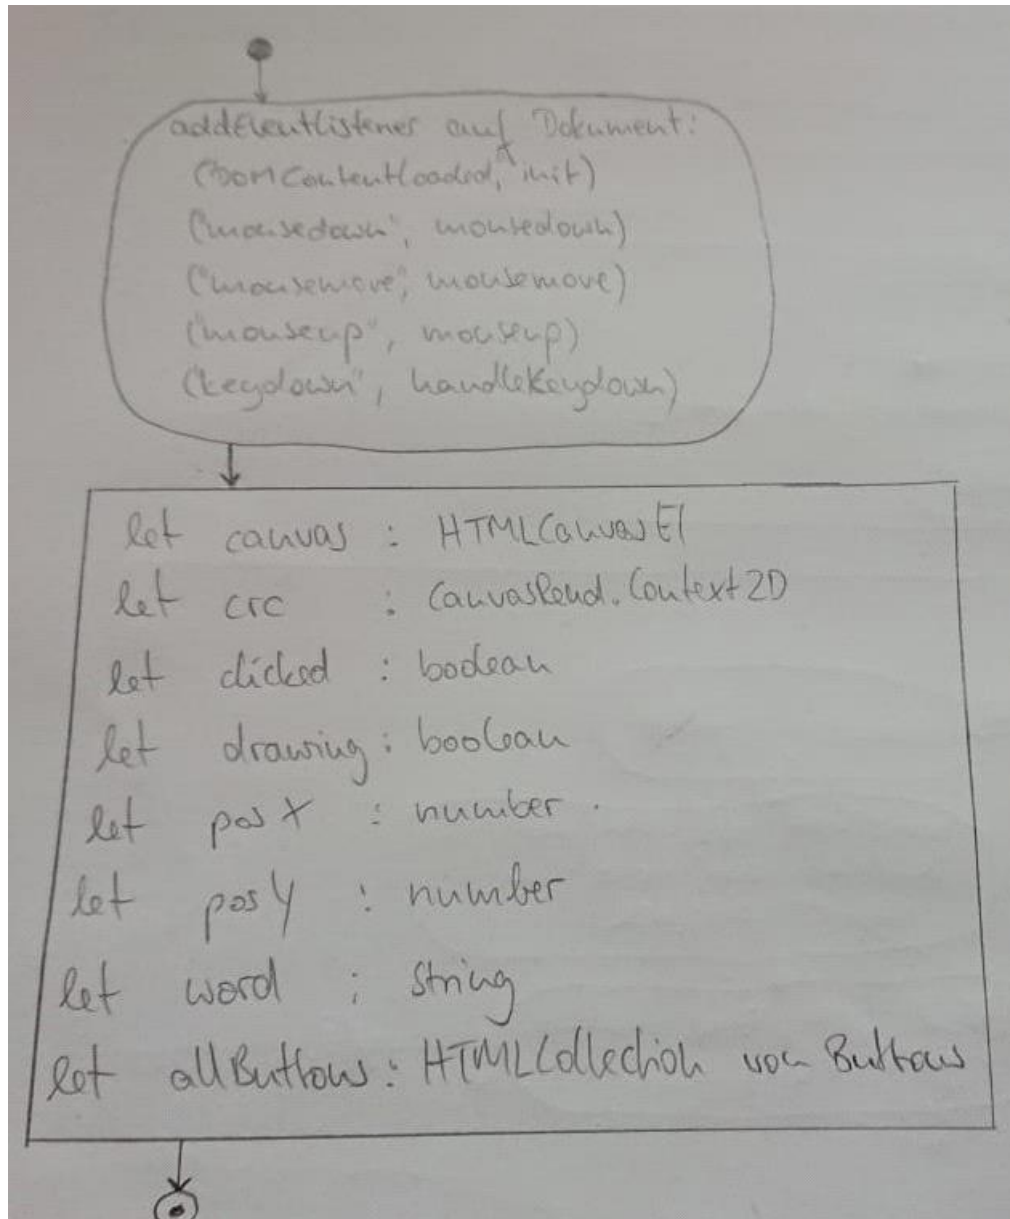 addEventListener auf Dokument:
(DOMContentLoaded, init)
("mousedown", mousedown)
("mousemove", mousemove)
("mouseup", mouseup)
("keydown", handleKeydown)
let canvas : HTMLCanvasEl
let crc : CanvasRend.Context2D
let clicked : boolean
let drawing : boolean
let posX : number
let posY : number
let word : string
let allButtons : HTMLCollection von Buttons